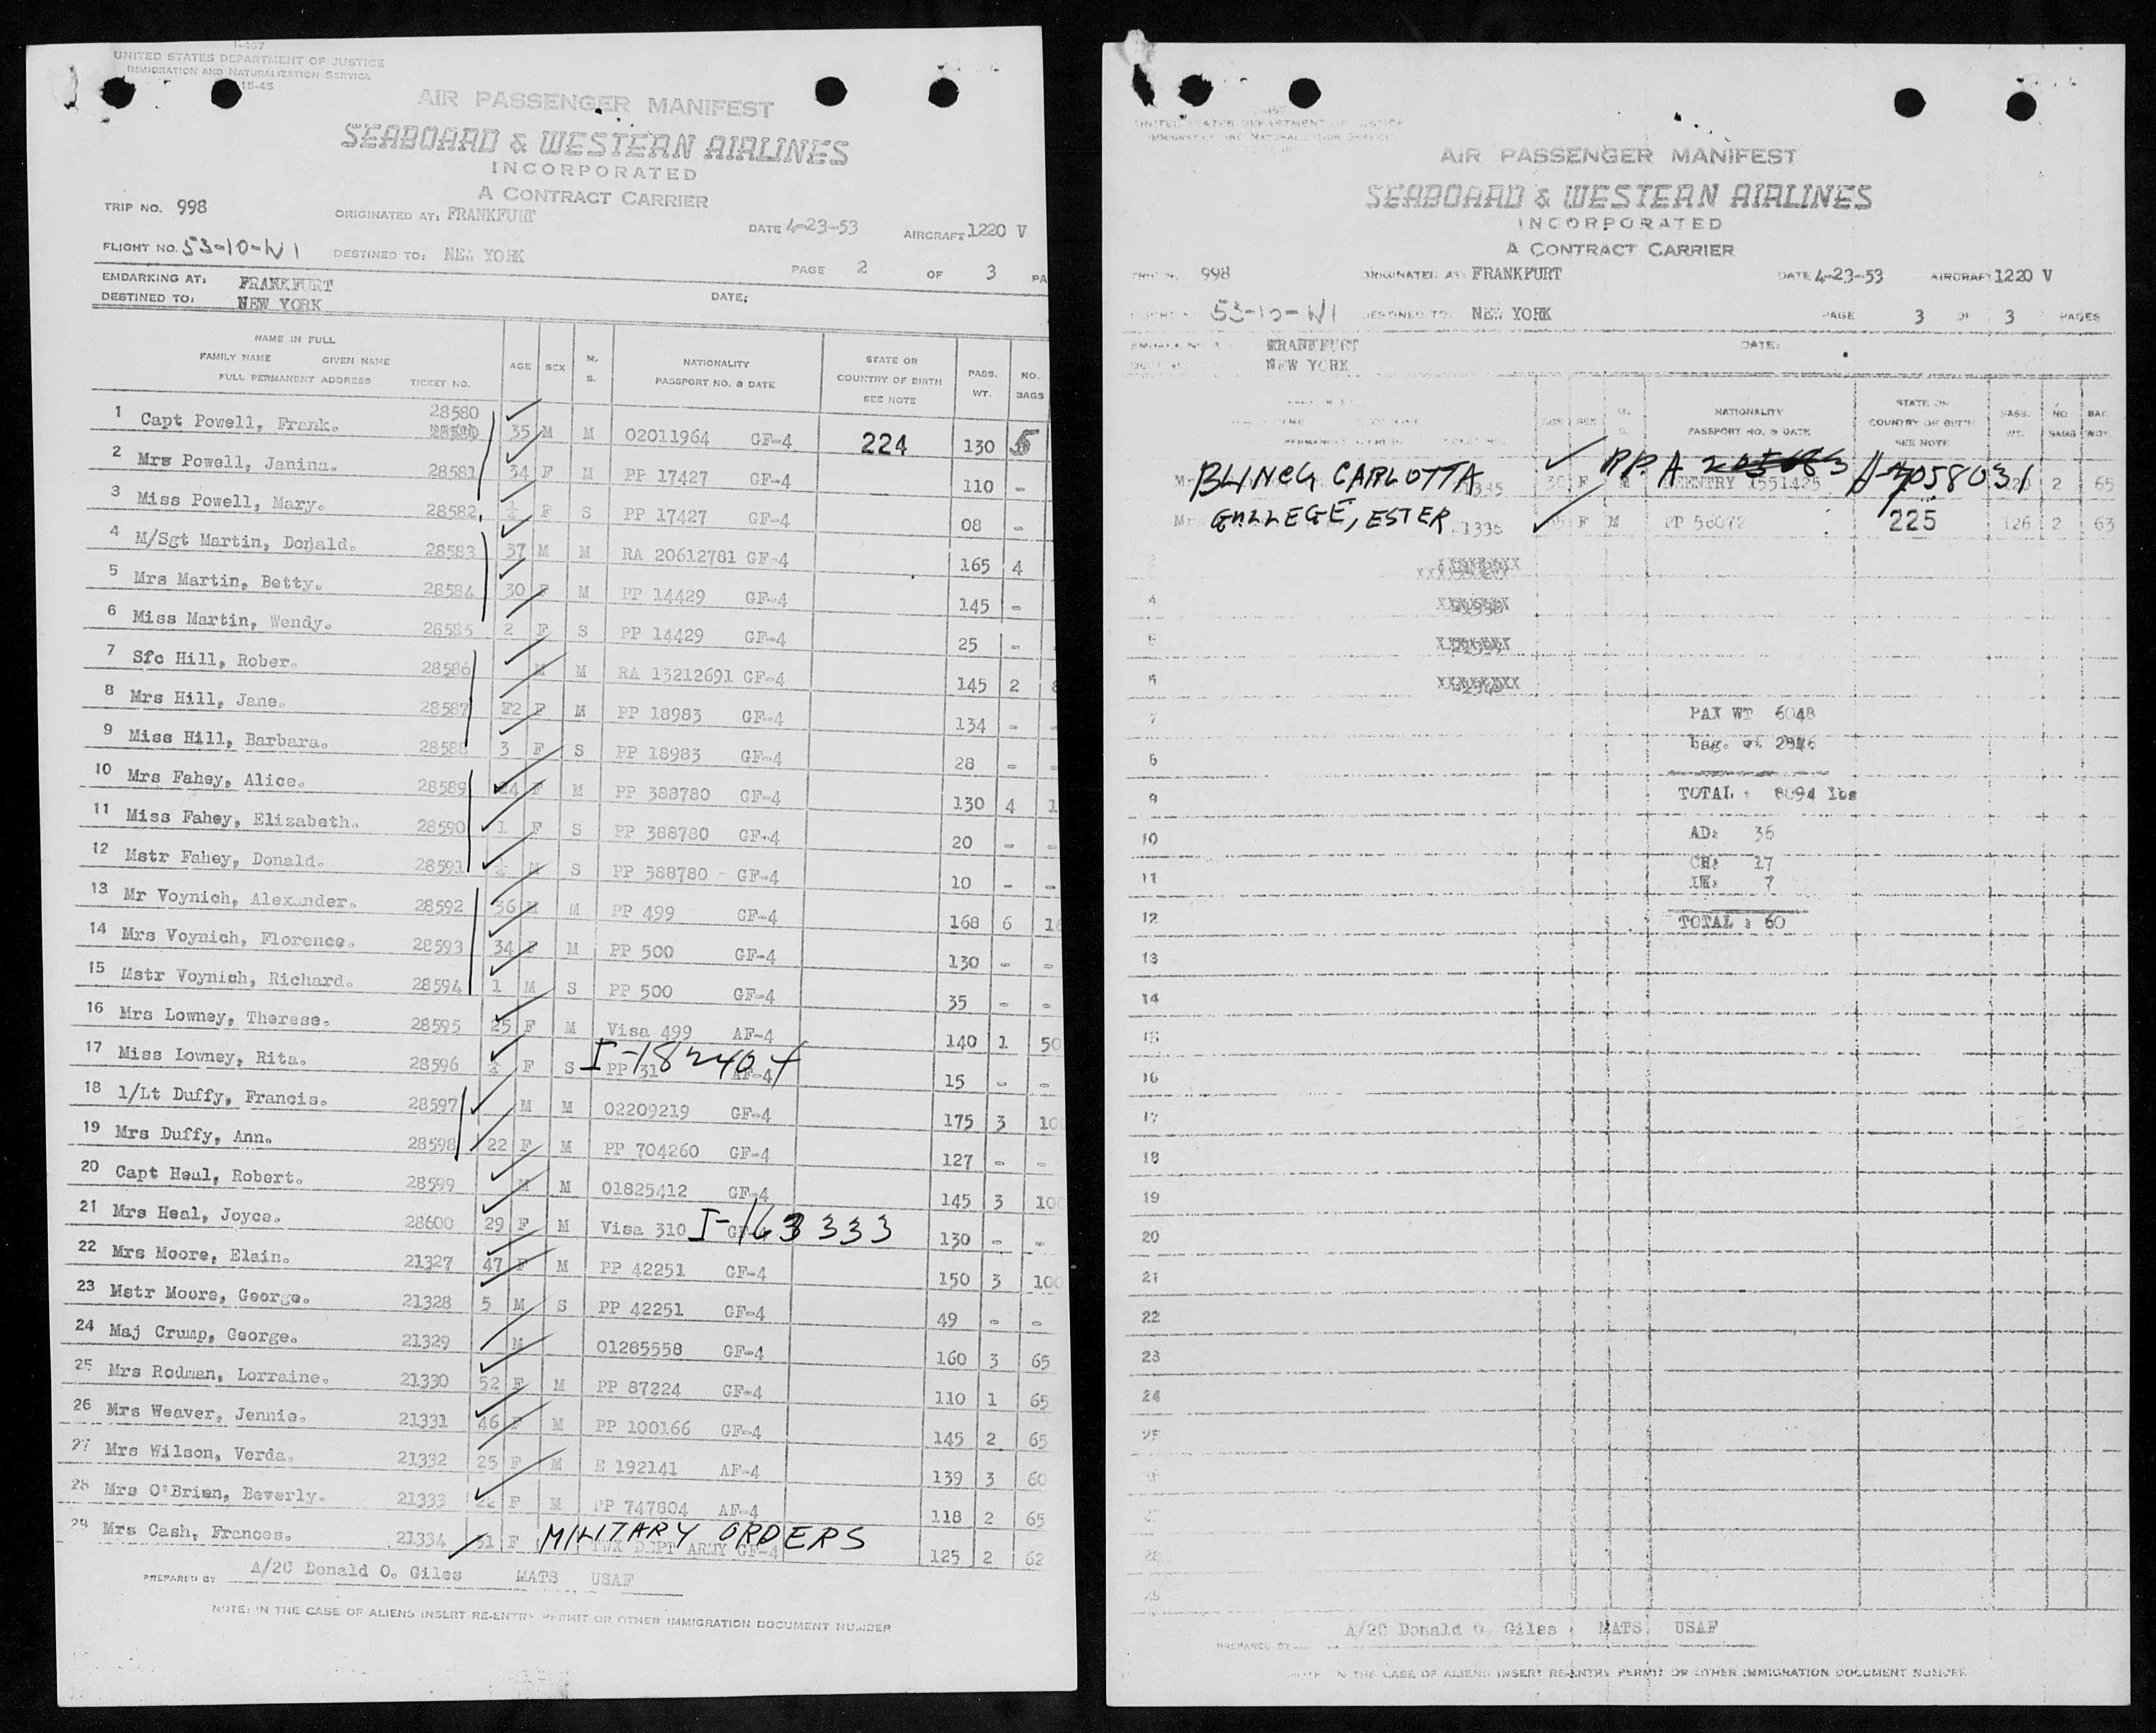 I-407
UNITED STATES DEPARTMENT OF JUSTICE
IMMIGRATION AND NATURALIZATION SERVICE
15-45
AIR PASSENGER MANIFEST
SEABOARD & WESTERN AIRLINES
INCORPORATED
A CONTRACT CARRIER
TRIP NO. 998 ORIGINATED AT: FRANKFURT DATE 4-23-53 AIRCRAFT 1220 V
FLIGHT NO. 53-10-W1 DESTINED TO: NEW YORK PAGE 2 OF 3 PA
EMBARKING AT: FRANKFURT
DESTINED TO: NEW YORK DATE:
NAME IN FULL
FAMILY NAME GIVEN NAME
FULL PERMANENT ADDRESS TICKET NO. AGE SEX M. S. NATIONALITY PASSPORT NO. & DATE STATE OR COUNTRY OF BIRTH SEE NOTE PASS. WT. NO. BAGS
1 Capt Powell, Frank. 28580 35 M M 02011964 GF-4 224 130 5
2 Mrs Powell, Janina. 28581 34 F M PP 17427 GF-4 110 -
3 Miss Powell, Mary. 28582 F S PP 17427 GF-4 08 -
4 M/Sgt Martin, Donald. 28583 37 M M RA 20612781 GF-4 165 4
5 Mrs Martin, Betty. 28584 30 F M PP 14429 GF-4 145 -
6 Miss Martin, Wendy. 28585 2 F S PP 14429 GF-4 25 -
7 Sfc Hill, Rober. 28586 M M RA 13212691 GF-4 145 2 8
8 Mrs Hill, Jane. 28587 F M PP 18983 GF-4 134 -
9 Miss Hill, Barbara. 28588 3 F S PP 18983 GF-4 28 - -
10 Mrs Fahey, Alice. 28589 24 F M PP 388780 GF-4 130 4 1
11 Miss Fahey, Elizabeth. 28590 1 F S PP 388780 GF-4 20 - -
12 Mstr Fahey, Donald. 28591 M S PP 388780 - GF-4 10 - -
13 Mr Voynich, Alexander. 28592 36 M M PP 499 GF-4 168 6 16
14 Mrs Voynich, Florence. 28593 34 F M PP 500 GF-4 130 - -
15 Mstr Voynich, Richard. 28594 1 M S PP 500 GF-4 35 - -
16 Mrs Lowney, Therese. 28595 25 F M Visa 499 AF-4 140 1 50
17 Miss Lowney, Rita. 28596 F S PP 31 I-182404 AF-4 15 - -
18 1/Lt Duffy, Francis. 28597 M M 02209219 GF-4 175 3 10
19 Mrs Duffy, Ann. 28598 22 F M PP 704260 GF-4 127 - -
20 Capt Heal, Robert. 28599 M M 01825412 GF-4 145 3 100
21 Mrs Heal, Joyce. 28600 29 F M Visa 310 I-163333 130 - -
22 Mrs Moore, Elain. 21327 47 F M PP 42251 GF-4 150 3 100
23 Mstr Moore, George. 21328 5 M S PP 42251 GF-4 49 - -
24 Maj Crump, George. 21329 M 01285558 GF-4 160 3 65
25 Mrs Rodman, Lorraine. 21330 52 F M PP 87224 GF-4 110 1 65
26 Mrs Weaver, Jennie. 21331 46 F M PP 100166 GF-4 145 2 65
27 Mrs Wilson, Verda. 21332 25 F M E 192141 AF-4 139 3 60
28 Mrs O'Brien, Beverly. 21333 22 F M PP 747804 AF-4 118 2 65
29 Mrs Cash, Frances. 21334 51 F MILITARY ORDERS TWX DEPT ARMY GF-4 125 2 62
PREPARED BY A/2C Donald O. Giles MATS USAF
NOTE: IN THE CASE OF ALIENS INSERT RE-ENTRY PERMIT OR OTHER IMMIGRATION DOCUMENT NUMBER
UNITED STATES DEPARTMENT OF JUSTICE
IMMIGRATION AND NATURALIZATION SERVICE
AIR PASSENGER MANIFEST
SEABOARD & WESTERN AIRLINES
INCORPORATED
A CONTRACT CARRIER
TRIP NO. 998 ORIGINATED AT: FRANKFURT DATE 4-23-53 AIRCRAFT 1220 V
FLIGHT 53-10-W1 DESTINED TO: NEW YORK PAGE 3 OF 3 PAGES
FRANKFURT DATE:
NEW YORK
AGE SEX NATIONALITY PASSPORT NO. & DATE STATE OR COUNTRY OF BIRTH SEE NOTE PASS. WT. NO. BAGS BAG. WGT.
BLINCG CARLOTTA 1335 30 F M REENTRY 1551425 PP.A A-7058031 120 2 65
GALLEGE, ESTER 1336 F M PP 56072 225 126 2 63
3
4
5
6
7 PAX WT 6048
bag. wt
8
9 TOTAL : 8894 lbs
10 AD: 36
CH: 17
11 IN: 7
12 TOTAL : 60
13
14
15
16
17
18
19
20
21
22
23
24
25
26
27
28
29
PREPARED BY A/2C Donald O. Giles MATS USAF
NOTE: IN THE CASE OF ALIENS INSERT RE-ENTRY PERMIT OR OTHER IMMIGRATION DOCUMENT NUMBER